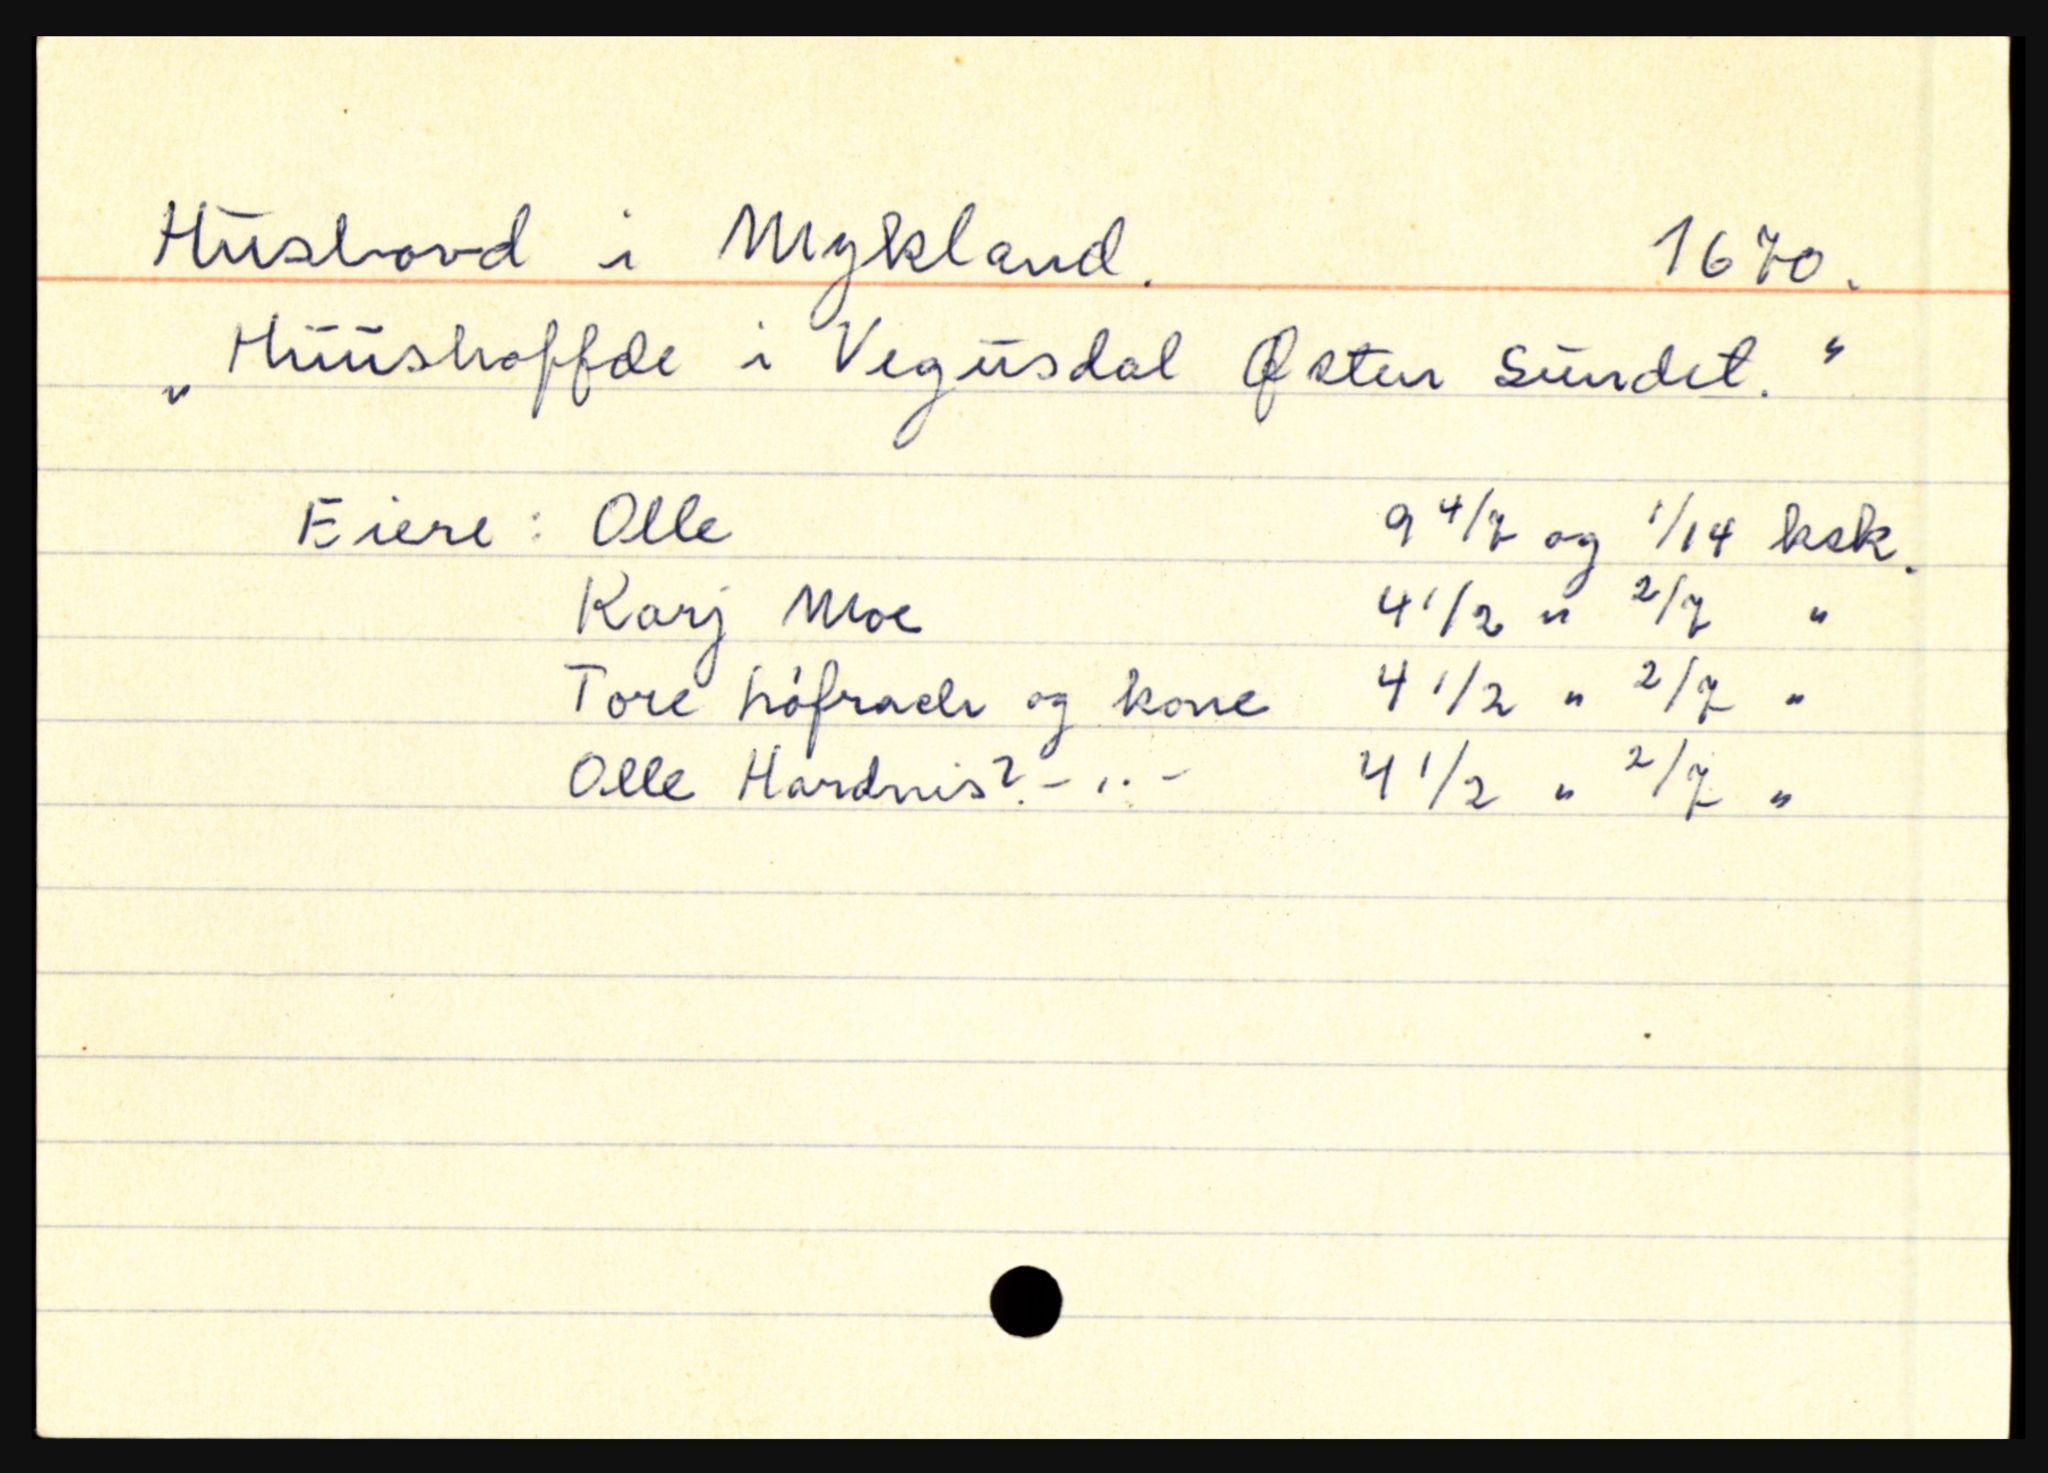 Hushovd i Mykland. 1670.
„Huushoffde i Vegusdal Østen Sundet."
Eiere: Olle 9 4/7 og 1/14 ksk.
Karj Moe 4 1/2 " 2/7 "
Tore og kone 4 1/2 " 2/7 "
Olle Hardnis? - " - 4 1/2 " 2/7 "